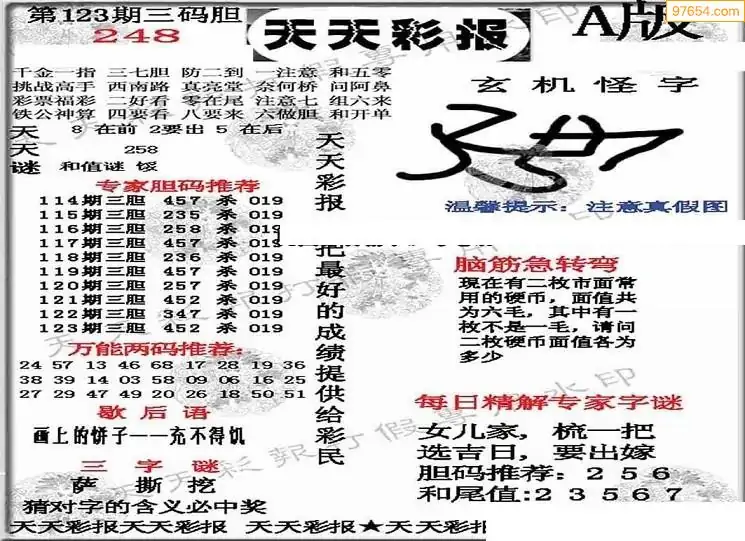 第123期三码胆
248
天天彩报
A版
97654.com
千金一指 三七胆 防二到 一注意 和五零
挑战高手 西南路 真亮堂 奈何桥 问阿鼻
彩票福彩 二好看 零在尾 注意七 组六来
铁公神算 四要看 八要来 六做胆 和开单
天 8 在前 2要出 5 在后
天 258
谜 和值谜 馁
玄机怪字
温馨提示: 注意真假图
专家胆码推荐
114期三胆 457 杀 019
115期三胆 235 杀 019
116期三胆 258 杀 019
117期三胆 457 杀 019
118期三胆 236 杀 019
119期三胆 457 杀 019
120期三胆 257 杀 019
121期三胆 452 杀 019
122期三胆 347 杀 019
123期三胆 452 杀 019
万能两码推荐:
24 57 13 46 68 17 28 19 36
38 39 14 03 58 09 06 16 25
27 29 47 49 20 26 18 50 51
歇后语
画上的饼子——充不得饥
三字谜
萨 撕 挖
猜对字的含义必中奖
天天彩报
把最好的成绩提供给彩民
脑筋急转弯
现在有二枚市面常
用的硬币,面值共
为六毛,其中有一
枚不是一毛,请问
二枚硬币面值各为
多少
每日精解专家字谜
女儿家,梳一把
选吉日,要出嫁
胆码推荐:2 5 6
和尾值:2 3 5 6 7
天天彩报天天彩报 天天彩报★天天彩报